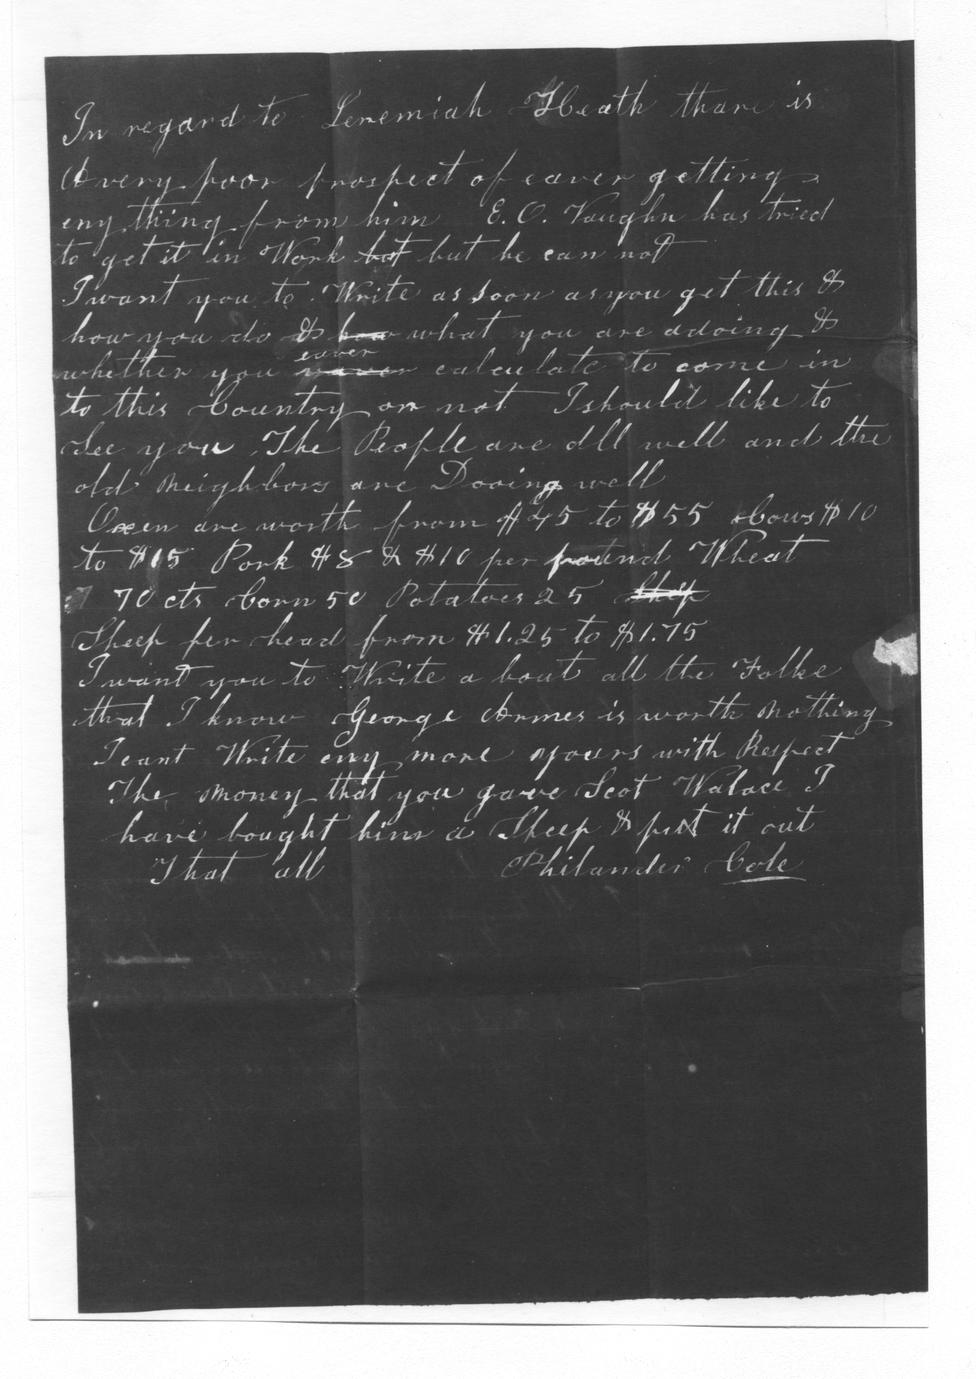 In regard to Jeremiah Heath thare is
A very poor prospect of eaver getting
eny thing from him E. O. Vaughn has tried
to get it in Work but but he can not
I want you to Write as soon as you get this &
how you do & how what you are adoing &
eaver
whether you never calculate to come in
to this Country or not I should like to
See you The People are all well and the
old Neighbors are Dooing well
Oxen are worth from $45 to $55 Cows $10
to $15 Pork $8 & $10 per pound Wheat
70 cts Corn 50 Potatoes 25 Shep
Sheep per head from $1.25 to $1.75
I want you to Write a bout all the Folks
that I know George Armes is worth Nothing
I cant Write eny more yours with Respect
The Money that you gave Scot Walace I
have bought him a Sheep & put it out
That all Philander Cole